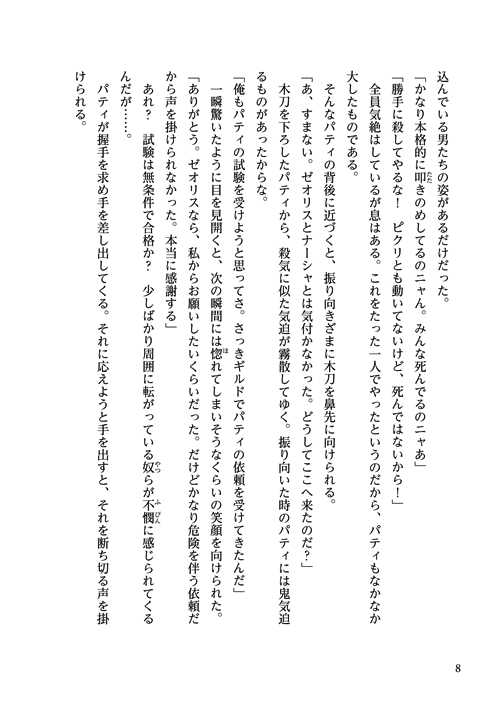 込んでいる男たちの姿があるだけだった。
「かなり本格的に叩きのめしてるのニャん。みんな死んでるのニャあ」
「勝手に殺してやるな！　ピクリとも動いてないけど、死んではないから！」
　全員気絶はしているが息はある。これをたった一人でやったというのだから、パティもなかなか
大したものである。
　そんなパティの背後に近づくと、振り向きざまに木刀を鼻先に向けられる。
「あ、すまない。ゼオリスとナーシャとは気付かなかった。どうしてここへ来たのだ？」
　木刀を下ろしたパティから、殺気に似た気迫が霧散してゆく。振り向いた時のパティには鬼気迫
るものがあったからな。
「俺もパティの試験を受けようと思ってさ。さっきギルドでパティの依頼を受けてきたんだ」
　一瞬驚いたように目を見開くと、次の瞬間には惚れてしまいそうなくらいの笑顔を向けられた。
「ありがとう。ゼオリスなら、私からお願いしたいくらいだった。だけどかなり危険を伴う依頼だ
から声を掛けられなかった。本当に感謝する」
　あれ？　試験は無条件で合格か？　少しばかり周囲に転がっている奴らが不憫に感じられてくる
んだが……。
　パティが握手を求め手を差し出してくる。それに応えようと手を出すと、それを断ち切る声を掛
けられる。
8